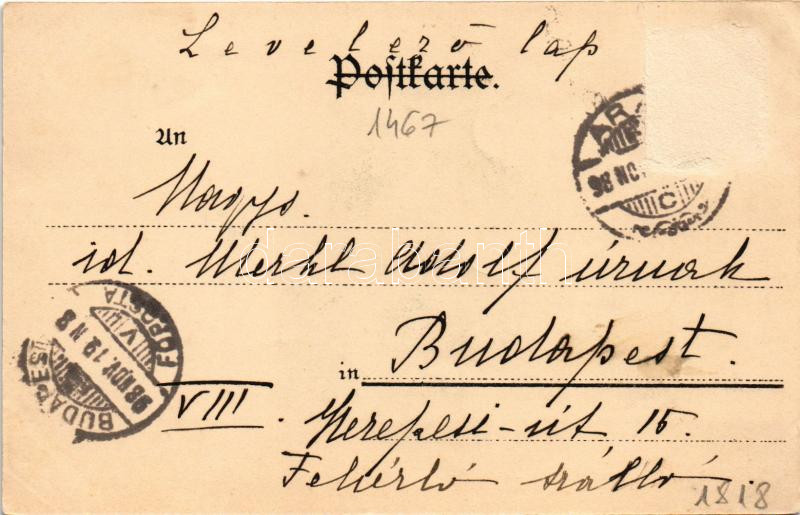 Levelező lap
Postkarte.
1467
An
Nagys.
id. Merkl Adolf úrnak
in Budapest.
VIII. Kerepesi-út 15.
Fehérló szálló.
1818
BUDAPEST
FŐPOSTA
98 NOV. 12 N 8
V
AR
98 NO
C
darabanth